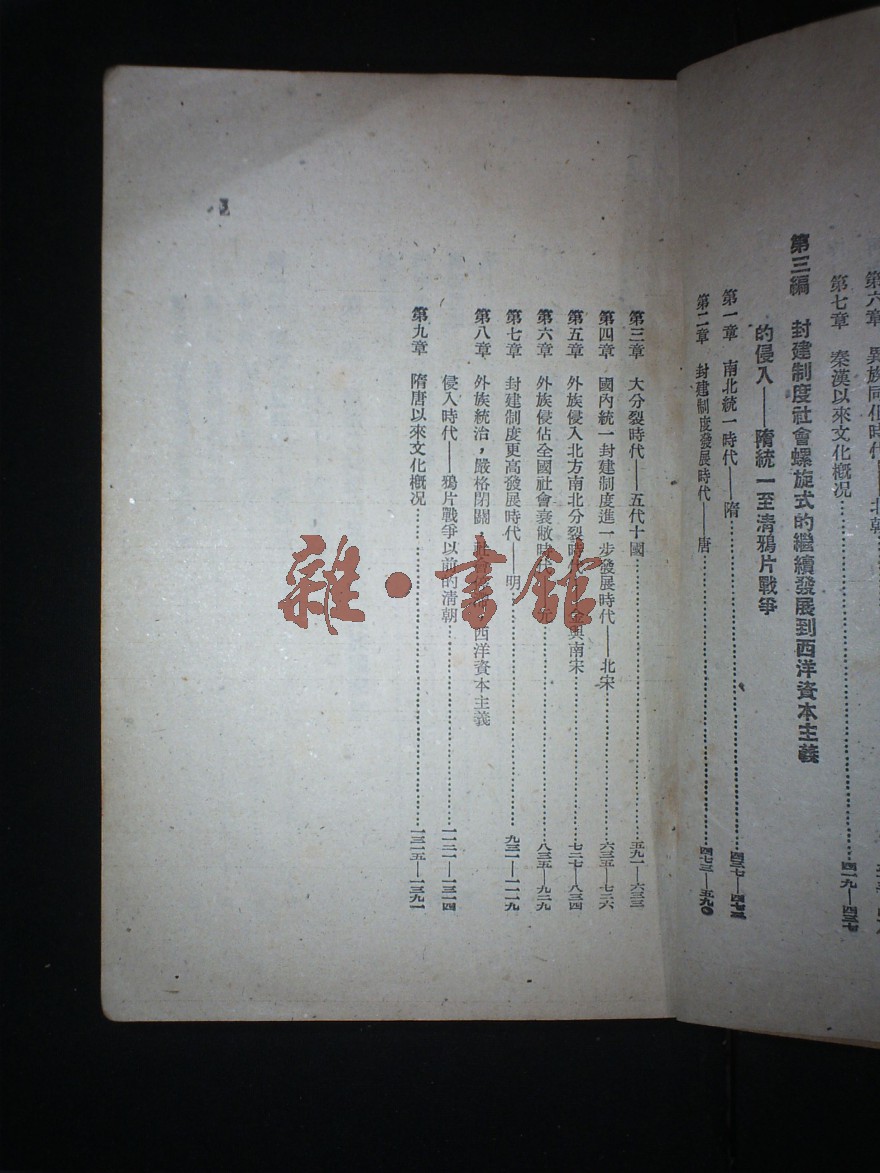 第六章　異族同化時代——北朝
第七章　秦漢以來文化概况……四一九—四三七
第三編　封建制度社會螺旋式的繼續發展到西洋資本主義
的侵入——隋統一至淸鴉片戰爭
第一章　南北統一時代——隋……四三七—四七三
第二章　封建制度發展時代——唐……四七三—五九〇
第三章　大分裂時代——五代十國……五九一—六三三
第四章　國內統一封建制度進一步發展時代——北宋……六三五—七二六
第五章　外族侵入北方南北分裂時代——金與南宋……七二七—八三四
第六章　外族侵佔全國社會衰敝時代——元……八三五—九二九
第七章　封建制度更高發展時代——明……九三一—一一一九
第八章　外族統治，嚴格閉關，西洋資本主義
侵入時代——鴉片戰爭以前的淸朝……一一二一—一三一四
第九章　隋唐以來文化概况……一三一五—一三九一
雜·書館